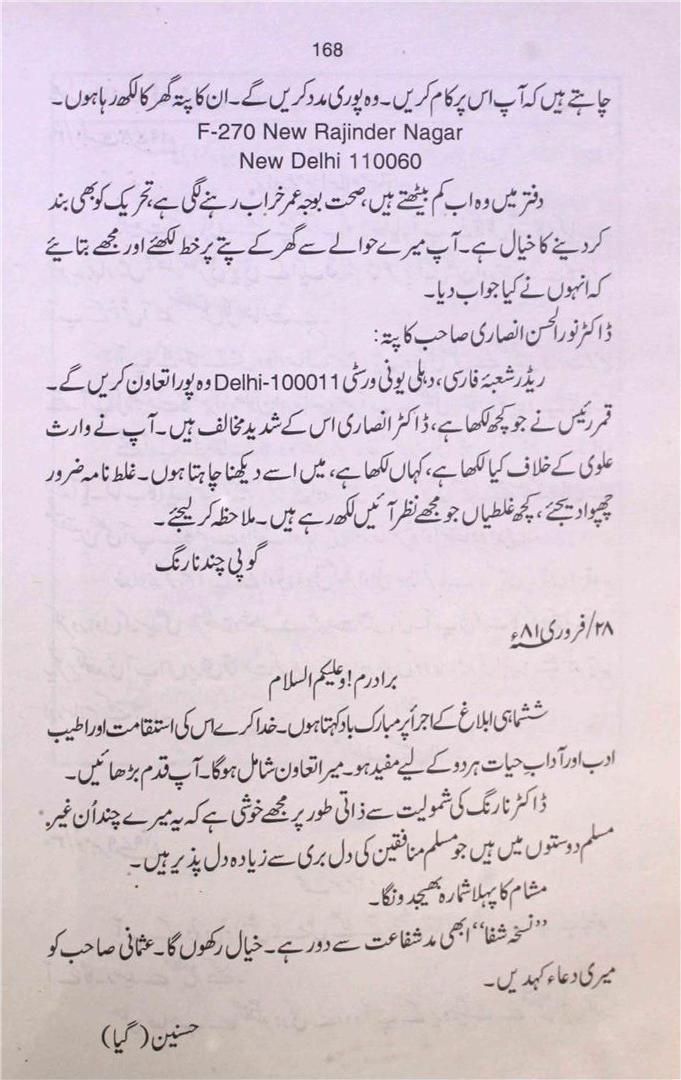 168
چاہتے ہیں کہ آپ اس پر کام کریں۔ وہ پوری مدد کریں گے۔ ان کا پتہ گھر کا لکھ رہا ہوں۔
F-270 New Rajinder Nagar
New Delhi 110060
دفتر میں وہ اب کم بیٹھتے ہیں، صحت بوجہ عمر خراب رہنے لگی ہے، تحریک کو بھی بند
کر دینے کا خیال ہے۔ آپ میرے حوالے سے گھر کے پتے پر خط لکھئے اور مجھے بتائیے
کہ انہوں نے کیا جواب دیا۔
ڈاکٹر نورالحسن انصاری صاحب کا پتہ:
ریڈر شعبۂ فارسی، دہلی یونی ورسٹی Delhi-100011 وہ پورا تعاون کریں گے۔
قمر رئیس نے جو کچھ لکھا ہے، ڈاکٹر انصاری اس کے شدید مخالف ہیں۔ آپ نے وارث
علوی کے خلاف کیا لکھا ہے، کہاں لکھا ہے، میں اسے دیکھنا چاہتا ہوں۔ غلط نامہ ضرور
چھپوا دیجئے، کچھ غلطیاں جو مجھے نظر آئیں لکھ رہے ہیں۔ ملاحظہ کر لیجئے۔
گوپی چند نارنگ
۲۸/ فروری ۸۱ء
برادرم! وعلیکم السلام
ششماہی ابلاغ کے اجرأ پر مبارک باد کہتا ہوں۔ خدا کرے اس کی استقامت اور اطیب
ادب اور آداب حیات ہر دو کے لیے مفید ہو۔ میرا تعاون شامل ہوگا۔ آپ قدم بڑھائیں۔
ڈاکٹر نارنگ کی شمولیت سے ذاتی طور پر مجھے خوشی ہے کہ یہ میرے چند اُن غیر
مسلم دوستوں میں ہیں جو مسلم منافقین کی دل بری سے زیادہ دل پذیر ہیں۔
مشام کا پہلا شمارہ بھیجدونگا۔
”نسخہ شفا“ ابھی مد شفاعت سے دور ہے۔ خیال رکھوں گا۔ عثمانی صاحب کو
میری دعاء کہدیں۔
حسنین (گیا)